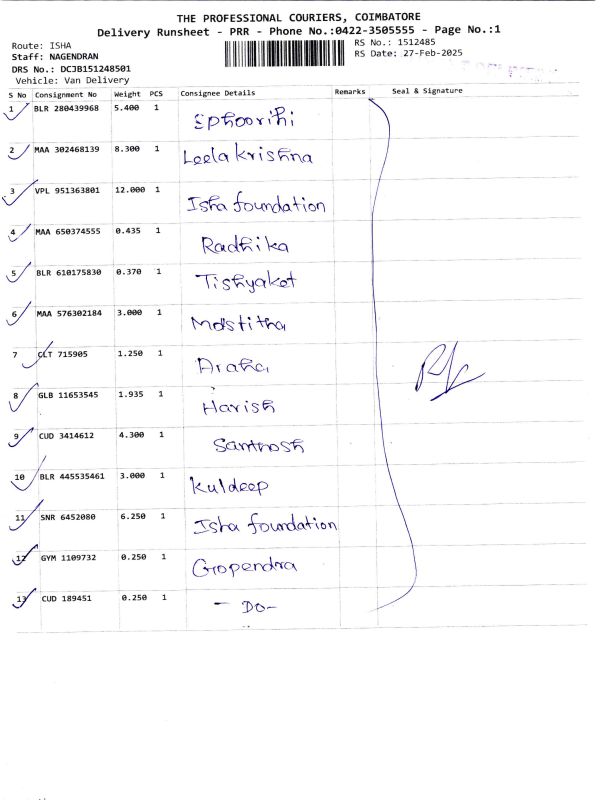 THE PROFESSIONAL COURIERS, COIMBATORE
Delivery Runsheet - PRR - Phone No.:0422-3505555 - Page No.:1
Route: ISHA
Staff: NAGENDRAN
DRS No.: DCJB151248501
Vehicle: Van Delivery
RS No.: 1512485
RS Date: 27-Feb-2025
S No Consignment No Weight PCS Consignee Details Remarks Seal & Signature
1 BLR 280439968 5.400 1 Ephoorihi
2 MAA 302468139 8.300 1 Leela Krishna
3 VPL 951363801 12.000 1 Isha foundation
4 MAA 650374555 0.435 1 Radhika
5 BLR 610175830 0.370 1 Tishyaket
6 MAA 576302184 3.000 1
7 CLT 715905 1.250 1
8 GLB 11653545 1.935 1 Harish
9 CUD 3414612 4.300 1 Santhosh
10 BLR 445535461 3.000 1 Kuldeep
11 SNR 6452080 6.250 1 Isha foundation
12 GYM 1109732 0.250 1 Gopendra
13 CUD 189451 0.250 1 - Do -